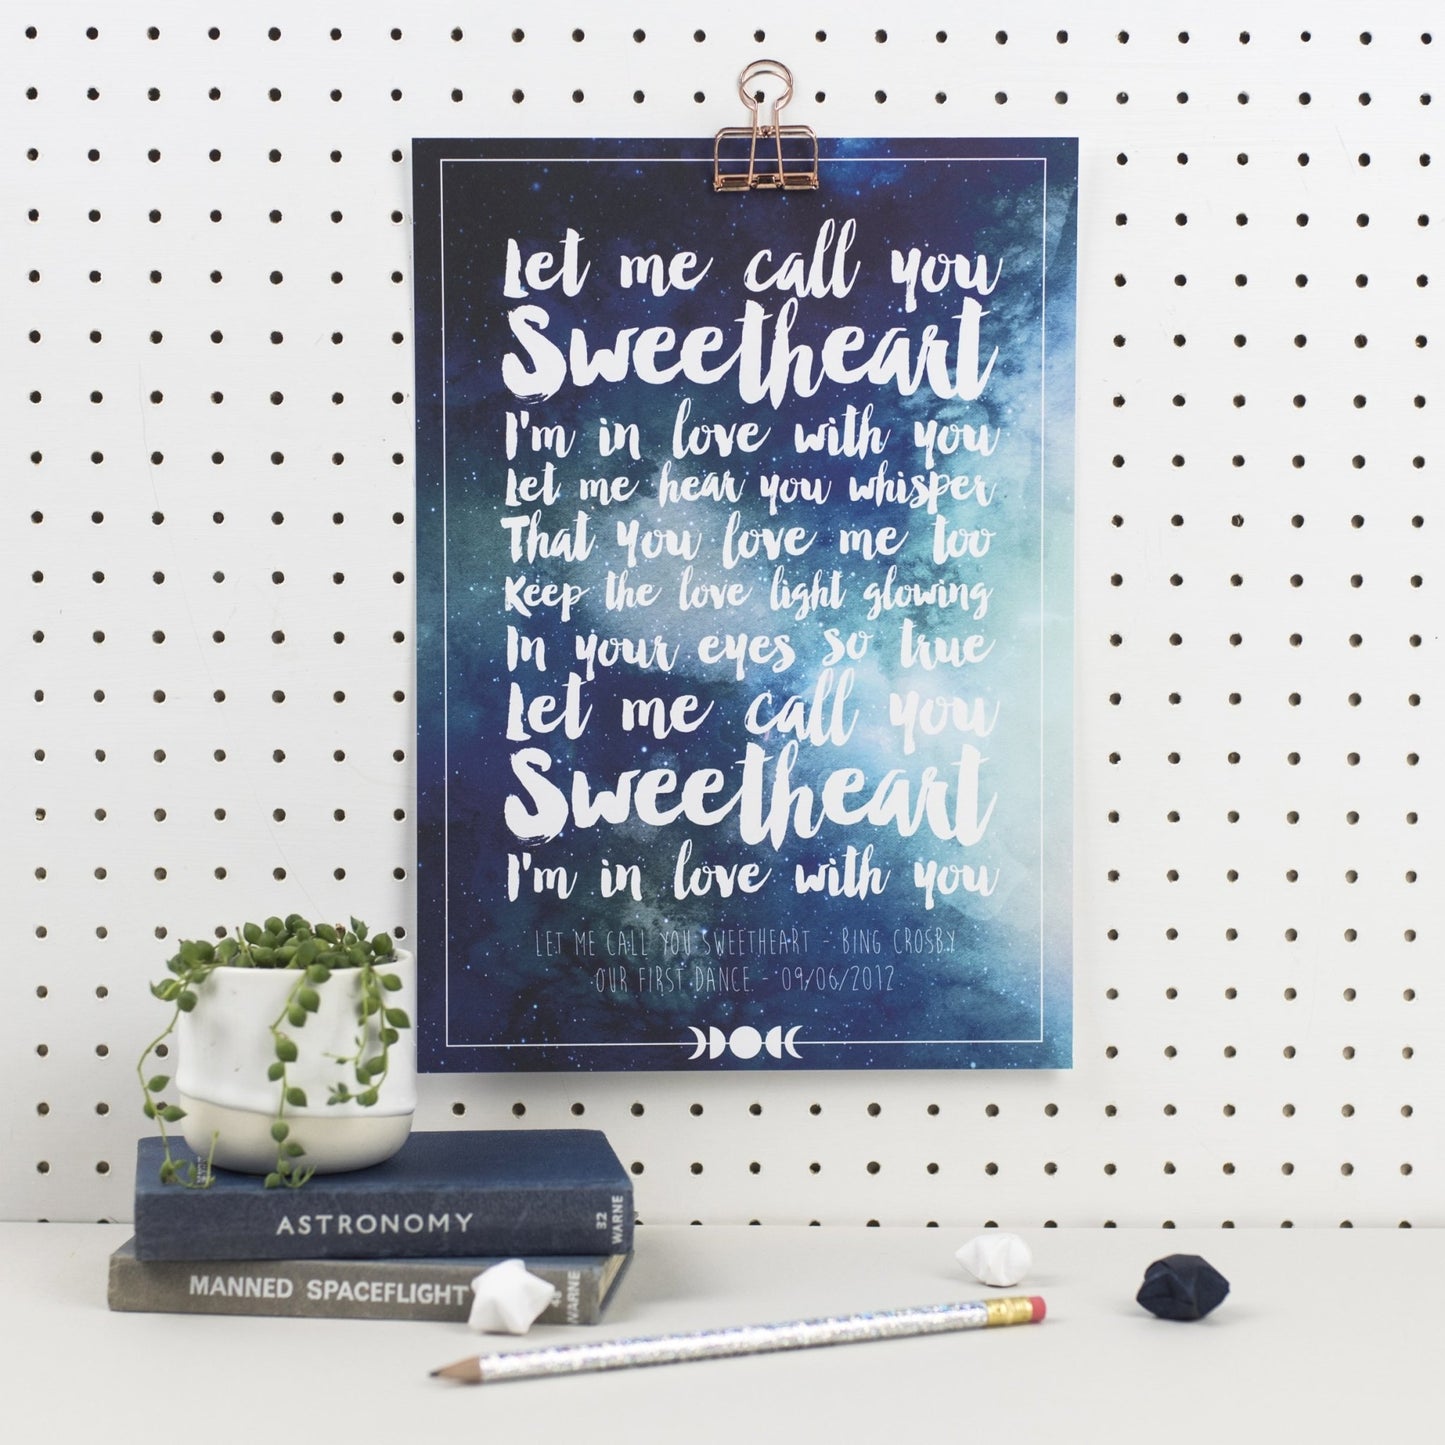 Let me call you
Sweetheart
I'm in love with you
Let me hear you whisper
That you love me too
Keep the love light glowing
In your eyes so true
Let me call you
Sweetheart
I'm in love with you
LET ME CALL YOU SWEETHEART - BING CROSBY
OUR FIRST DANCE - 09/06/2012
ASTRONOMY
32
WARNE
MANNED SPACEFLIGHT
48
WARNE